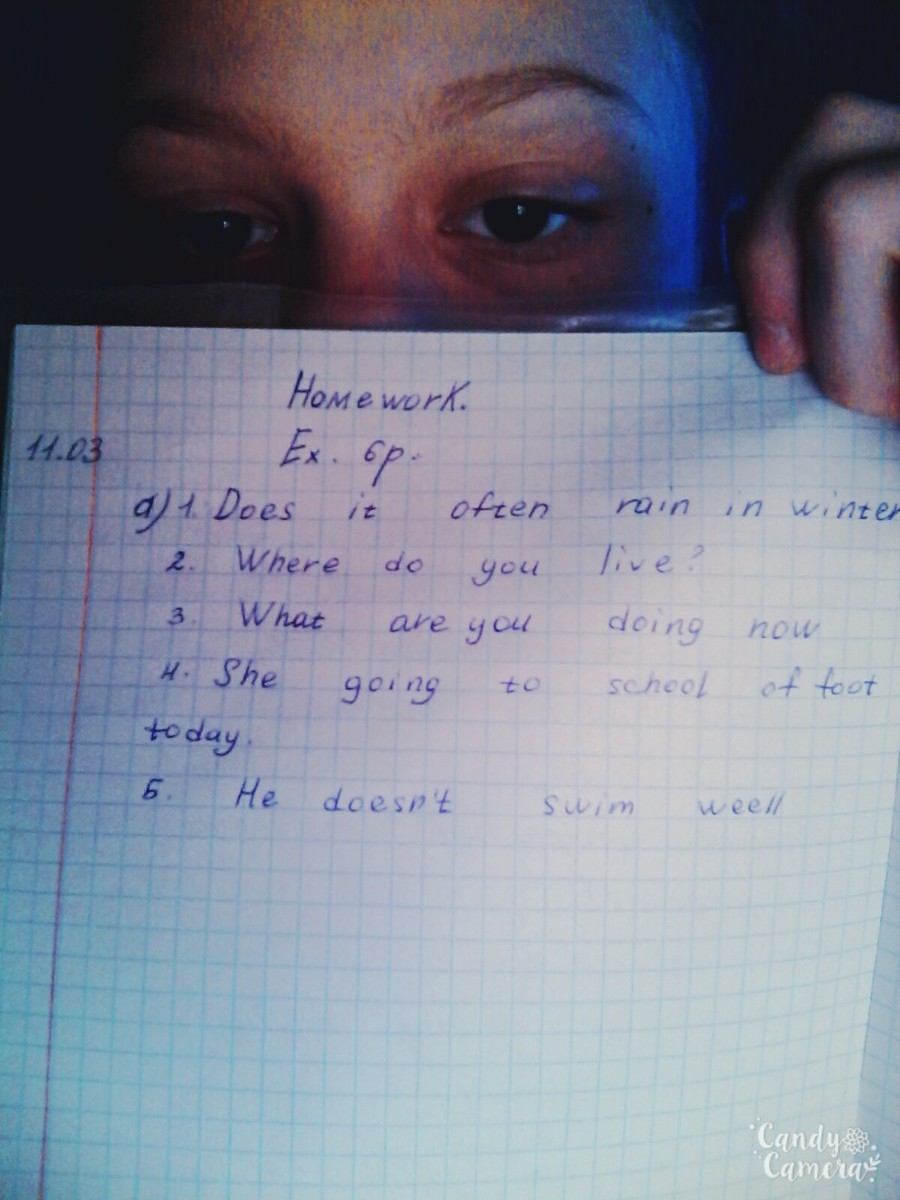 Homework.
11.03 Ex. 6p.
a) 1. Does it often rain in winter
2. Where do you live?
3. What are you doing now
4. She going to school of foot
today.
5. He doesn't swim weell
Candy
Camera